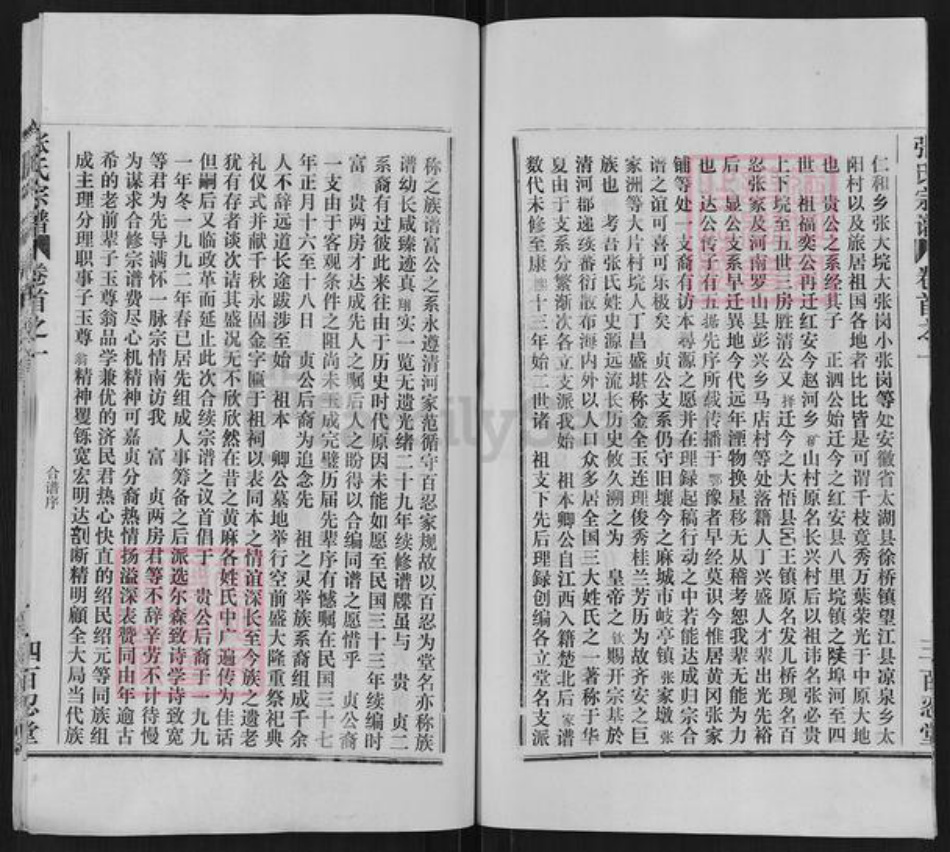 张氏宗谱 卷首之一 三 百忍堂
仁和乡张大垸大张岗小张岗等处安徽省太湖县徐桥镇望江县凉泉乡太
阳村以及旅居祖国各地者比比皆是可谓千枝竟秀万葉荣光于中原大地
也 贵公之系经其子 正泗公始迁今之红安县八里垸镇之陡埠河至四
世 祖福奕公再迁红安今赵河乡 矿山村原名长兴村后以祖讳名张必贵
上下垸至五世三房胜清公又择迁今之大悟县区王镇原名发儿桥现名百
忍张家及河南罗山县彭兴乡马店村等处落籍人丁兴盛人才辈出光先裕
后 显公支系早迁異地今代远年湮物换星移无从稽考恕我辈无能为力
也 达公传子有五据先序所线传播于鄂豫者早经莫识今惟居黄冈张家
铺等处一支裔有访本尋源之愿并在理録起稿行动之中若能达成归宗合
谱之谊可喜可乐极矣 贞公支系仍守旧壤今之麻城市岐亭镇张家墩张
家洲等大片村垸人丁昌盛堪称金全玉连理俊秀桂兰芳历为故齐安之巨
族也 考吾张氏姓史源远流长历史攸久溯之为 皇帝之 钦赐开宗基於
清河郡递续蕃衍散布海内外以人口众多居全国三大姓氏之一著称于华
夏由于支系分繁渐次各立支派我始 祖本卿公自江西入籍楚北后家谱
数代未修至康 十三年始二世诸 祖支下先后理録创编各立堂名支派
称之族谱富公之系永遵清河家范循守百忍家规故以百忍为堂名亦称族
谱幼长咸臻迹真翔实一览无遗光绪二十九年续修谱牒虽与 贵 贞二
系裔有过彼此来往由于历史时代原因未能如愿至民国三十三年续编时
富 贵两房才达成先人之嘱后人之盼得以合编同谱之愿惜乎 贞公裔
一支由于客观条件之阻尚未玉成完璧历届先辈序有憾嘱在民国三十七
年正月十六至十八日 贞公后裔为追念先 祖之灵举族系裔组成千余
人不辞远道长途跋涉至始 祖本 卿公墓地举行空前盛大隆重祭祀典
礼仪式并献千秋永固金字匾于祖祠以表同本之情谊深长至今族之遗老
犹有存者谈次诘其盛况无不欣欣然在昔之黄麻各姓氏中广遍传为佳话
但嗣后又临政革而延止此次合续宗谱之议首倡于 贵公后裔于一九九
一年冬一九九二年春已居先组成人事筹备之后派选尔森致诗学诗致宽
等君为先导满怀一脉宗情南访我 富 贞两房君等不辞辛劳不计待慢
为谋求合修宗谱费尽心机精神可嘉贞分裔热情扬溢深表赞同由年逾古
希的老前辈子玉尊翁品学兼优的济民君热心快直的绍民绍元等同族组
成主理分理职事子玉尊翁精神矍铄宽宏明达剖断精明顧全大局当代族
张氏宗谱 卷首之一 合谱序 四 百忍堂